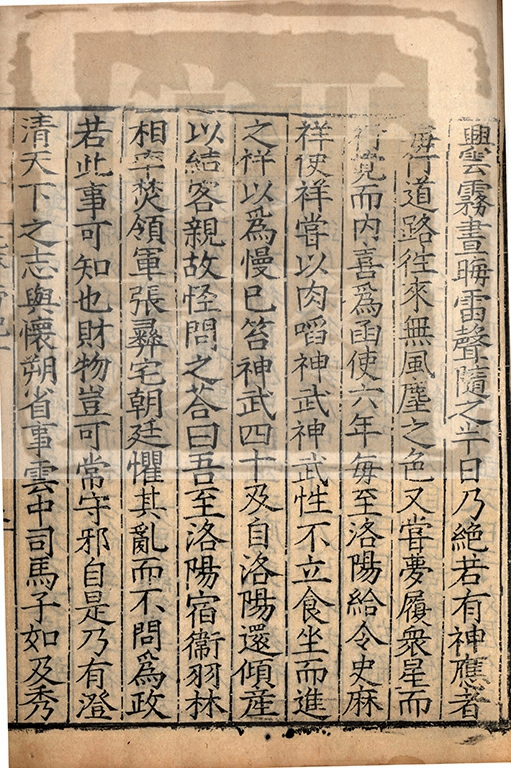 興雲霧晝晦雷聲隨之半日乃絕若有神應者
每行道路徃來無風塵之色又嘗夢履衆星而
行覺而内喜爲函使六年毎至洛陽給令史麻
祥使祥嘗以肉啗神武神武性不立食坐而進
之祥以爲慢已笞神武四十及自洛陽還傾産
以結客親故怪問之荅曰吾至洛陽宿衞羽林
相率焚領軍張彝宅朝廷懼其亂而不問爲政
若此事可知也財物豈可常守邪自是乃有澄
清天下之志與懷朔省事雲中司馬子如及秀